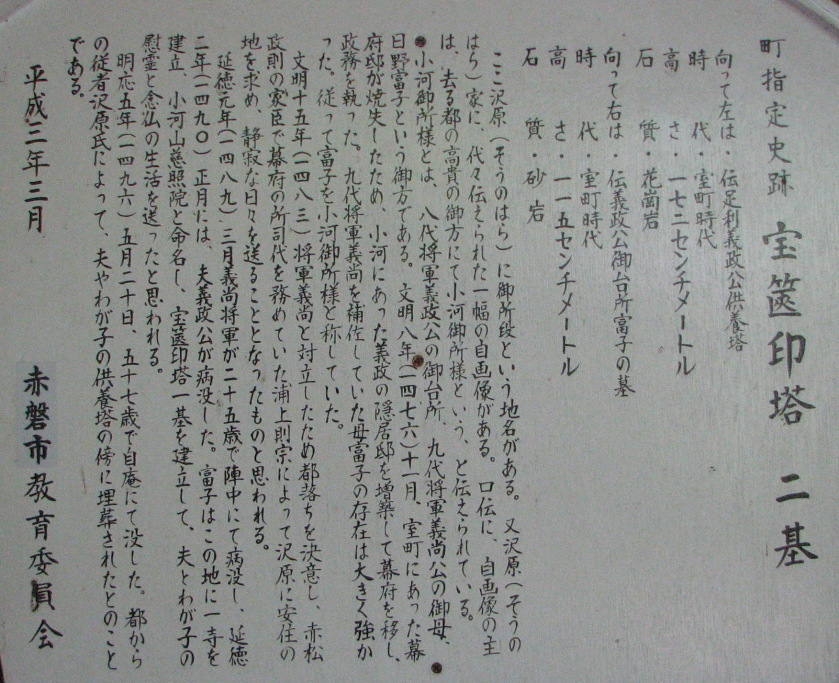 町指定史跡 宝篋印塔 二基
向って左は・伝足利義政公供養塔
時代・室町時代
高さ・一七二センチメートル
石質・花崗岩
向って右は・伝義政公御台所富子の墓
時代・室町時代
高さ・一一五センチメートル
石質・砂岩
ここ沢原(そうのはら)に御所段という地名がある。又沢原(そうの
はら)家に、代々伝えられた一幅の自画像がある。口伝に、自画像の主
は、去る都の高貴の御方にて小河御所様という、と伝えられている。
小河御所様とは、八代将軍義政公の御台所、九代将軍義尚公の御母、
日野富子という御方である。文明八年(一四七六)十一月、室町にあった幕
府邸が焼失したため、小河にあった義政の隠居邸を増築して幕府を移し、
政務を執った。九代将軍義尚を補佐していた母富子の存在は大きく強か
った。従って富子を小河御所様と称していた。
文明十五年(一四八三)将軍義尚と対立したため都落ちを決意し、赤松
政則の家臣で幕府の所司代を務めていた浦上則宗によって沢原に安住の
地を求め、静寂な日々を送ることとなったものと思われる。
延徳元年(一四八九)三月義尚将軍が二十五歳で陣中にて病没し、延徳
二年(一四九〇)正月には、夫義政公が病没した。富子はこの地に一寺を
建立、小河山慈照院と命名し、宝篋印塔一基を建立して、夫とわが子の
慰霊と念仏の生活を送ったと思われる。
明応五年(一四九六)五月二十日、五十七歳で自庵にて没した。都から
の従者沢原氏によって、夫やわが子の供養塔の傍に埋葬されたとのこと
である。
平成三年三月
赤磐市教育委員会